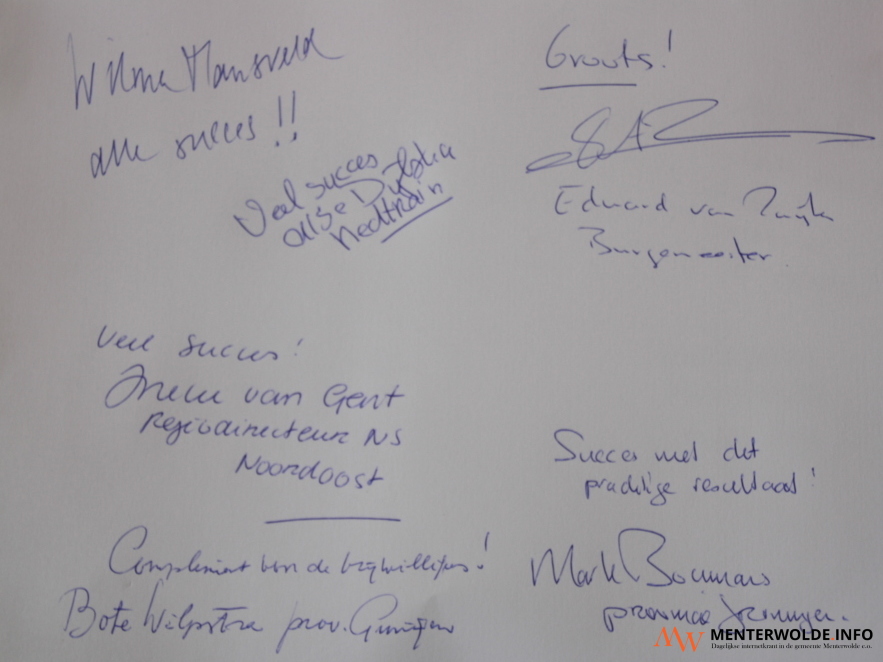 Wilma Mansveld
alle succes !!
Veel succes
Nedtrain
Groots!
Eduard van Zuijlen
Burgemeester.
Veel succes!
Ineke van Gent
Regiodirecteur NS
Noordoost
Compliment van de vrijwilligers!
Bote Wilpstra prov. Groningen
Succes met dit
prachtige resultaat!
Mark Boumans
provincie Groningen.
MW MENTERWOLDE.INFO
Dagelijkse internetkrant in de gemeente Menterwolde e.o.